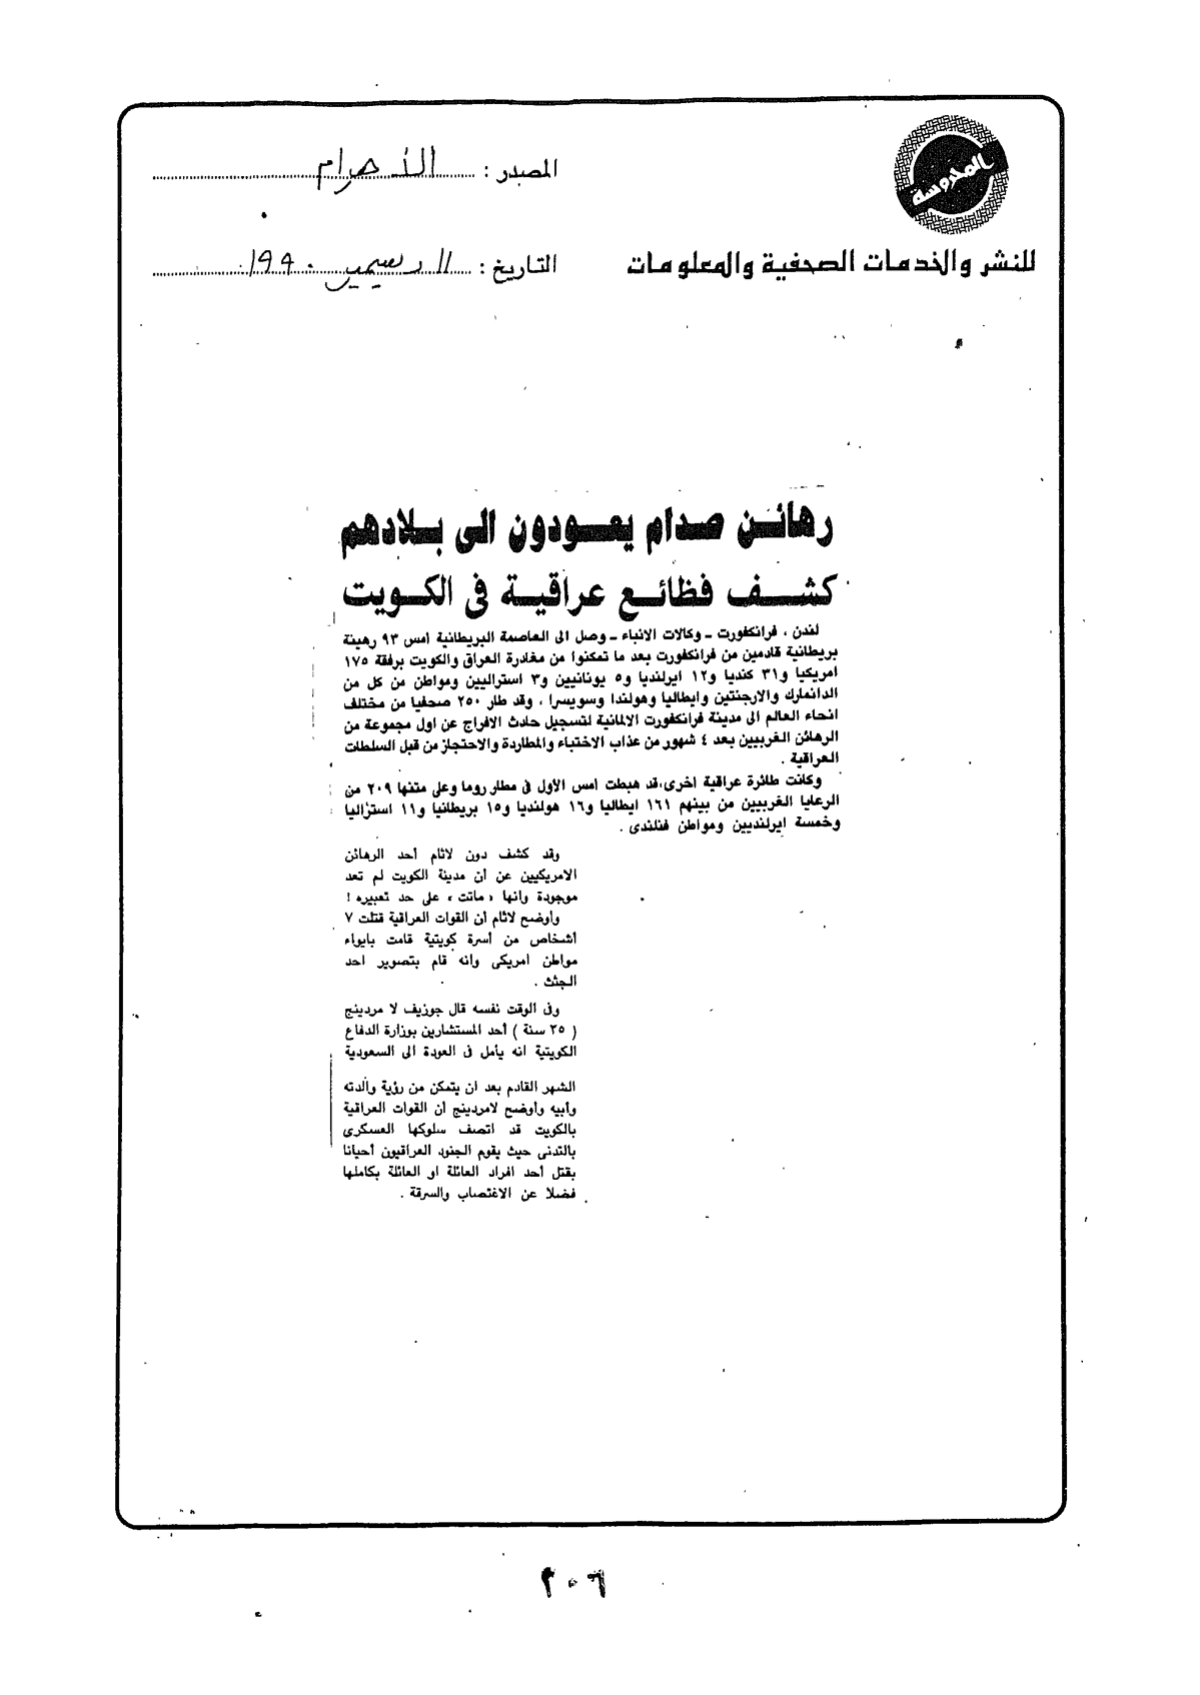 المحروسة
المصدر : الأهرام
للنشر والخدمات الصحفية والمعلومات
التاريخ : ١١ ديسمبر ١٩٩٠
رهائن صدام يعودون الى بلادهم
كشف فظائع عراقية فى الكويت
لندن ، فرانكفورت ــ وكالات الانباء ــ وصل الى العاصمة البريطانية امس ٩٣ رهينة
بريطانية قادمين من فرانكفورت بعد ما تمكنوا من مغادرة العراق والكويت برفقة ١٧٥
امريكيا و٣١ كنديا و١٢ ايرلنديا و٥ يونانيين و٣ استراليين ومواطن من كل من
الدانمارك والارجنتين وايطاليا وهولندا وسويسرا ، وقد طار ٢٥٠ صحفيا من مختلف
انحاء العالم الى مدينة فرانكفورت الالمانية لتسجيل حادث الافراج عن اول مجموعة من
الرهائن الغربيين بعد ٤ شهور من عذاب الاختباء والمطاردة والاحتجاز من قبل السلطات
العراقية .
وكانت طائرة عراقية اخرى،قد هبطت امس الأول فى مطار روما وعلى متنها ٢٠٩ من
الرعايا الغربيين من بينهم ١٦١ ايطاليا و١٦ هولنديا و١٥ بريطانيا و١١ استراليا
وخمسة ايرلنديين ومواطن فنلندى .
وقد كشف دون لاثام أحد الرهائن
الامريكيين عن أن مدينة الكويت لم تعد
موجودة وانها « ماتت » على حد تعبيره !
وأوضح لاثام أن القوات العراقية قتلت ٧
أشخاص من أسرة كويتية قامت بايواء
مواطن امريكى وانه قام بتصوير احد
الجثث .
وفى الوقت نفسه قال جوزيف لا مردينج
( ٢٥ سنة ) أحد المستشارين بوزارة الدفاع
الكويتية انه يأمل فى العودة الى السعودية
الشهر القادم بعد ان يتمكن من رؤية والدته
وأبيه وأوضح لامردينج أن القوات العراقية
بالكويت قد اتصف سلوكها العسكرى
بالتدنى حيث يقوم الجنود العراقيون أحيانا
بقتل أحد افراد العائلة او العائلة بكاملها
فضلا عن الاغتصاب والسرقة .
٢٠٦